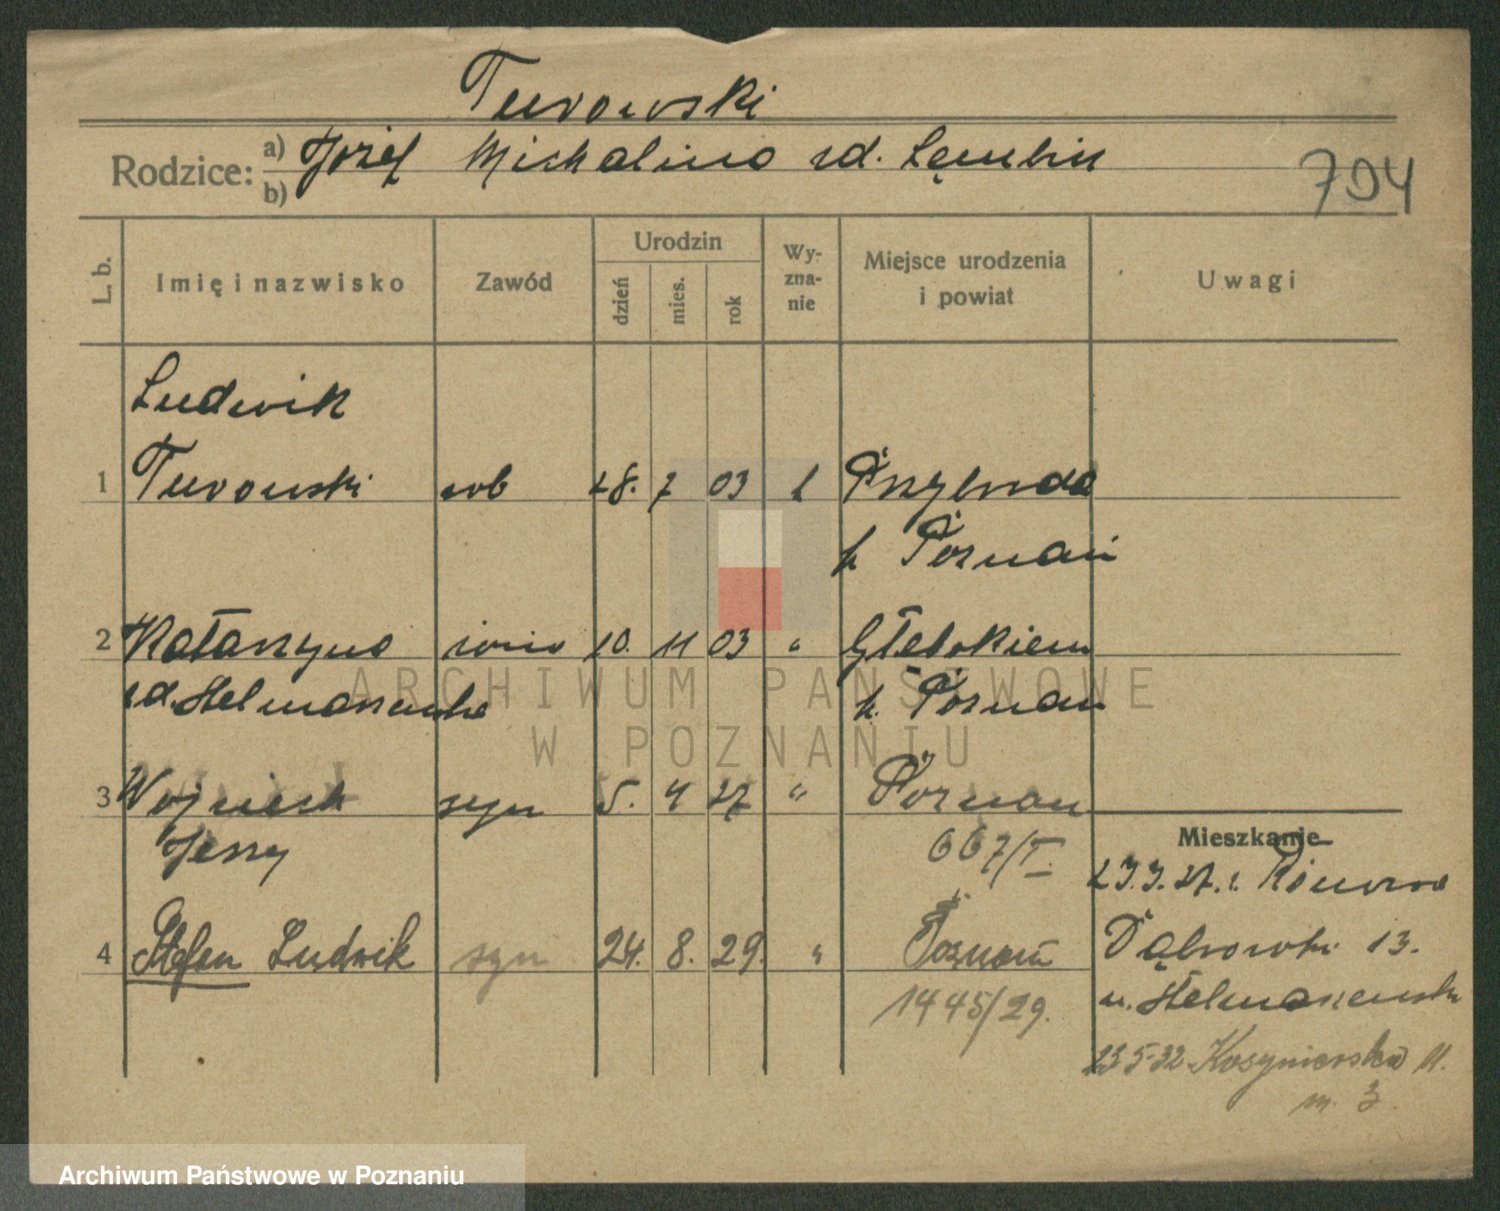 Turowski
Rodzice: a) Józef Michalina zd. Lembin
b)
704
L. b.
Imię i nazwisko
Zawód
Urodzin
dzień
mies.
rok
Wy-
zna-
nie
Miejsce urodzenia
i powiat
Uwagi
Ludwik
1 Turowski rob 28. 7 03
p. Poznań
2 Katarzyna żona 10. 11 03 "
p. Poznań
3 Wojciech syn 5. 4 27 " Poznań
Jerzy 667/I.
4 Stefan Ludwik syn 24. 8. 29. " Poznań
1445/29.
Mieszkanie
23.3.27. z
Dąbrowski 13.
u.
23 5-32 Kosynierska 11.
m. 3.
ARCHIWUM PAŃSTWOWE
W POZNANIU
Archiwum Państwowe w Poznaniu